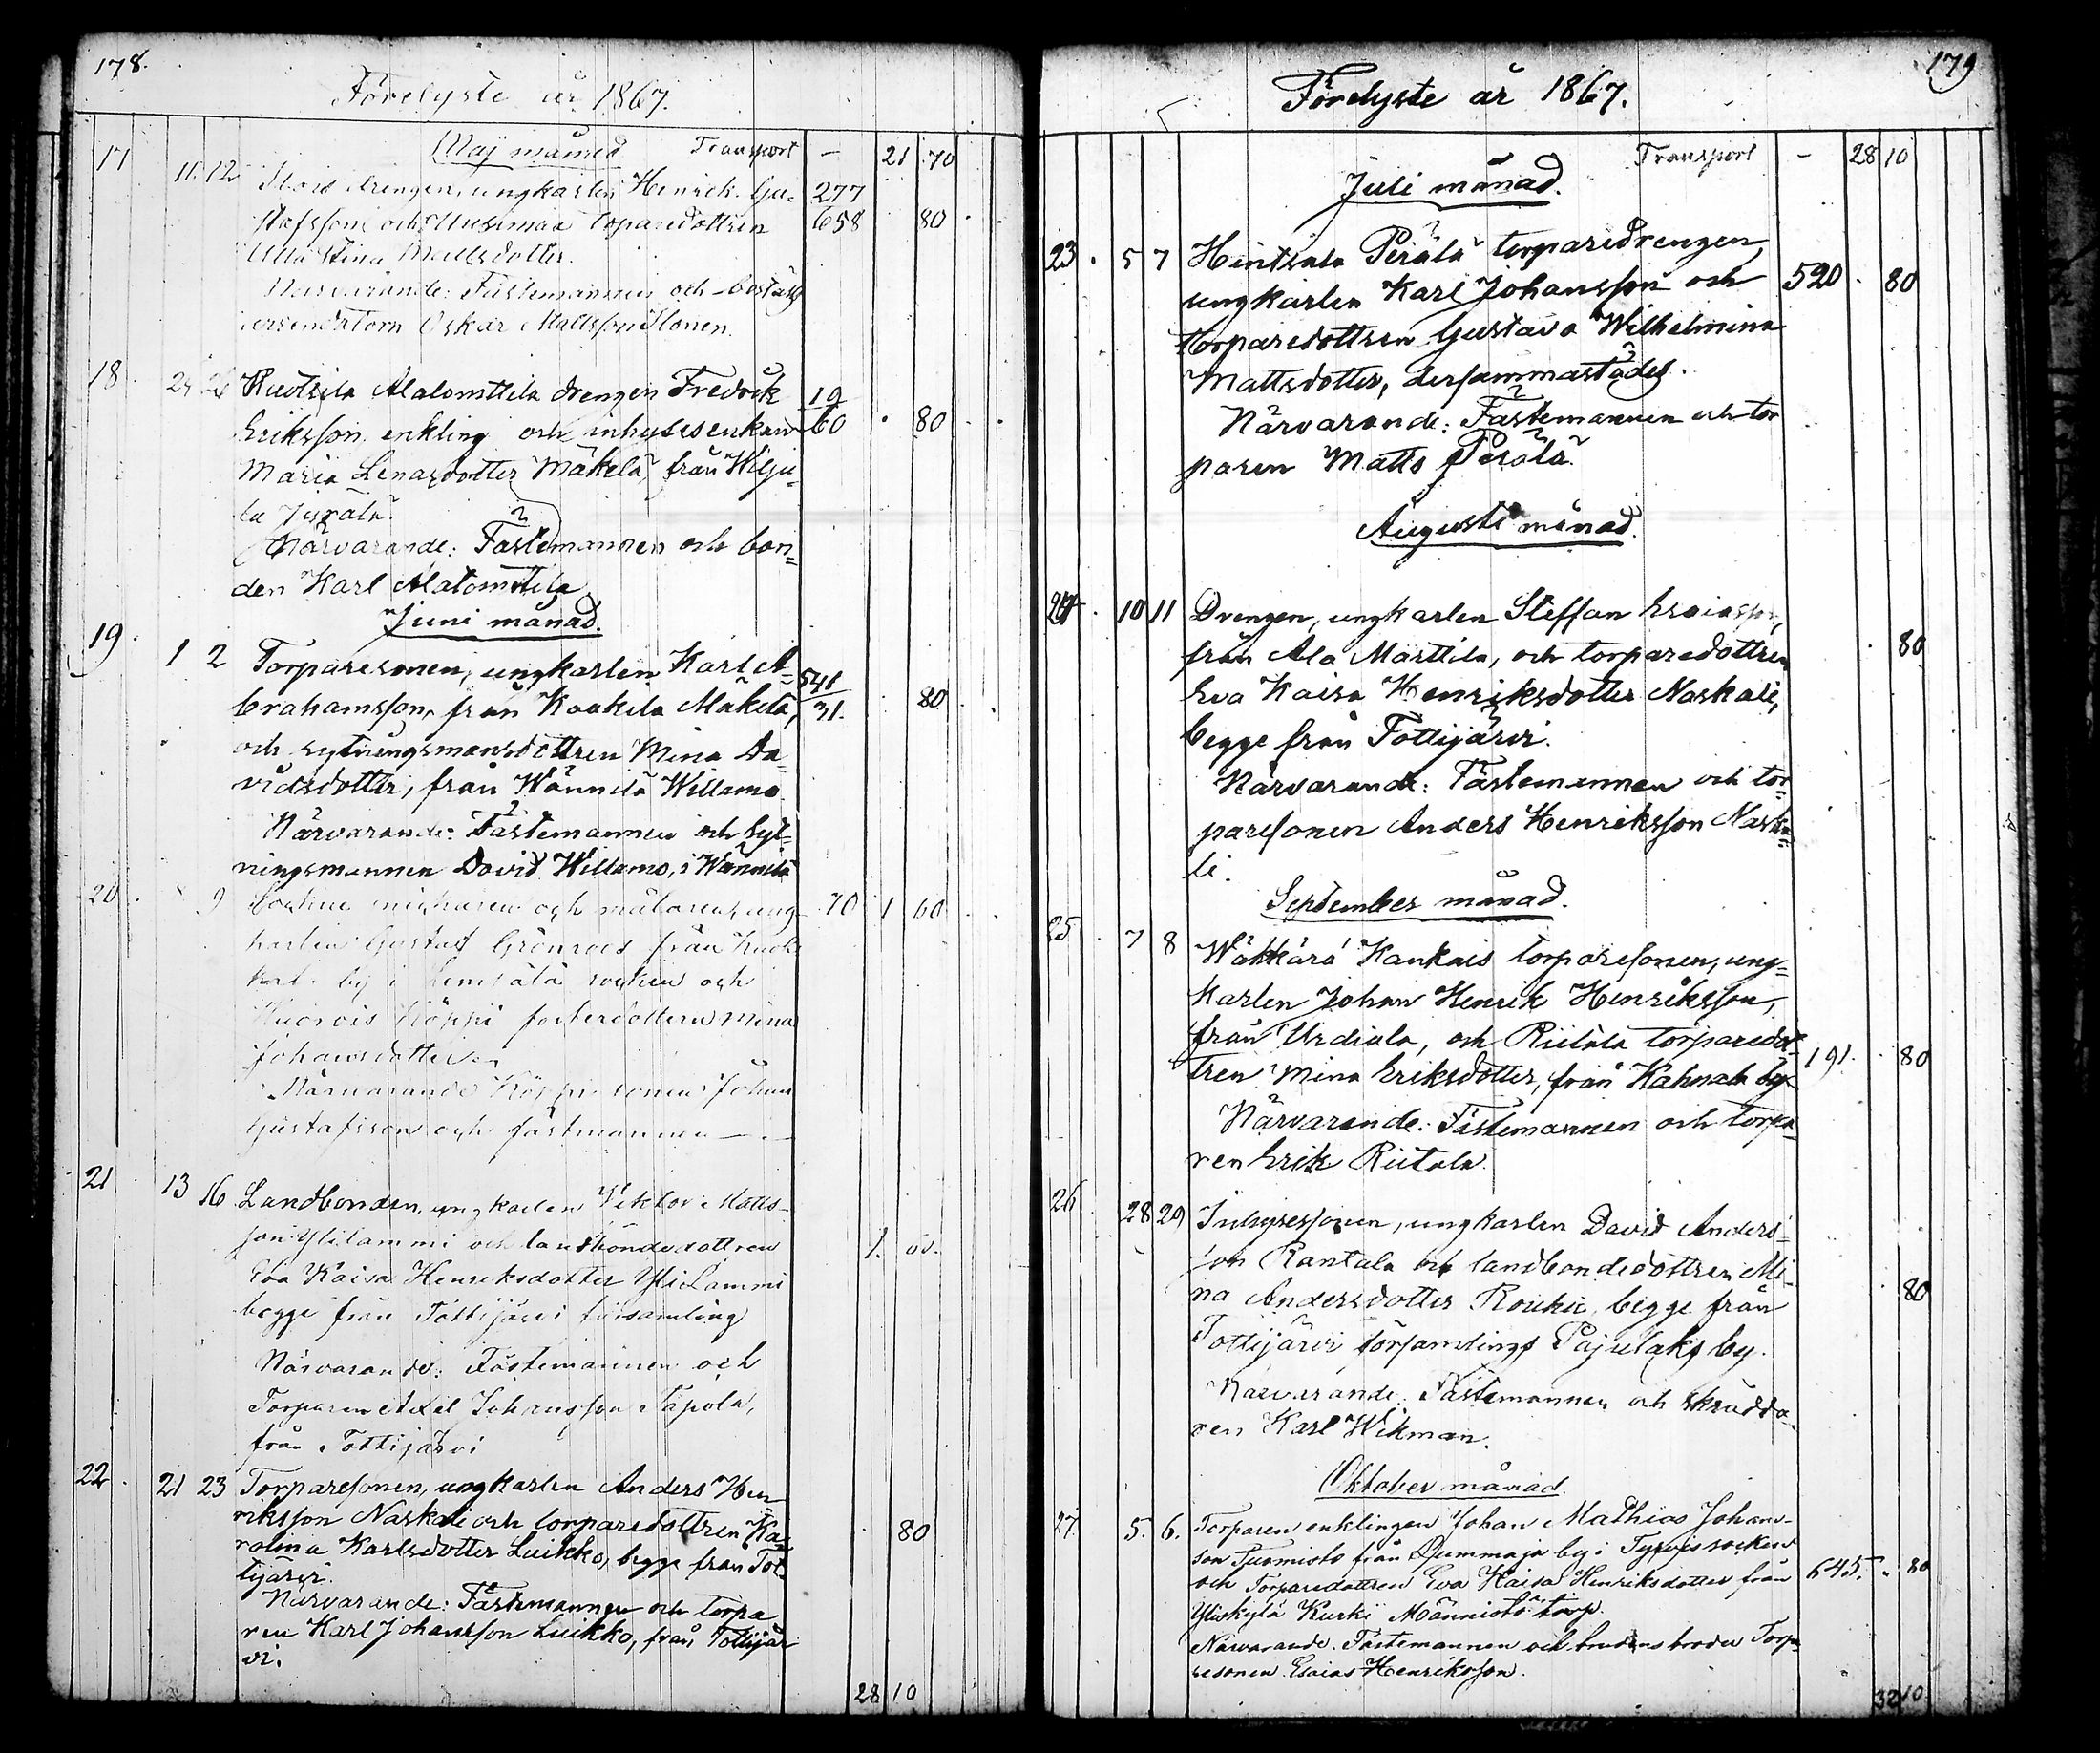 178.
Förelyste år 1867.
Maj månad Transport - 21 70
17 11. 12 drengen, ungkarlen Henrik Gu- 277
stafsson och Uusimaa torparedottren 658 80
Ulla Stina Mattsdotter.
Närvarande: Fästemannen och
Oskar Mattsson Ilonen.
18 24 Alatomttila drengen Fredrik 19
Eriksson, enkling och inhysesenkan 60 80
Maria Lenasdotter Mäkelä, från Wilju-
la Jusrala.
Närvarande: Fästemannen och bon-
den Karl Alatomttila
Juni månad.
19. 1 2 Torparesonen, ungkarlen Karl A- 541
brahamsson, från Kaakila Mäkelä, 31. 80
och sytningsmansdottren Mina Da-
vidsdotter, från Wännilä Willamo.
Närvarande: Fästemannen och Syt-
ningsmannen David Willamo, i Wännilä
20 9 Socknemakaren och målaren, ung- 70 1 60
karlen Gustaf Grönroos från
by i socken och
Höppi fosterdottren Mina
Johansdotter.
Närvarande Höppi sonen Johan
Gustafsson och fästmannen
21 13 16 Landbonden, ungkarlen Viktor Matts-
son Ylilammi och landbondedottren 1. 60.
Eva Kaisa Henriksdotter Yli Lammi
begge från Tottijärvi församling
Närvarande: Fästemannen och
Torparen Axel Johansson Tapola,
från Tottijärvi
22. 21 23 Torparesonen, ungkarlen Anders Hen-
riksson Naskali och torparedottren Ka- 80
rolina Karlsdotter Luikko, begge från Tot-
tijärvi.
Närvarande: Fästemannen och torpa
ren Karl Johansson Luikko, från Tottijär
vi.
28 10
179
Förelyste år 1867.
Transport - 28 10
Juli månad.
23. 5 7 Hintsala Perälä torparedrengen,
ungkarlen Karl Johansson och 520 80
torparedottren Gustava Wilhelmina
Mattsdotter, dersammastädes.
Närvarande: Fästemannen och tor
paren Matts Perälä.
Augusti månad.
24. 10 11 Drengen, ungkarlen Steffan Esaiasson,
från Ala Marttila, och torparedottren 80
Eva Kaisa Henriksdotter Naskali,
begge från Tottijärvi.
Närvarande: Fästemannen och tor-
paresonen Anders Henriksson Naska-
li.
September månad.
25 7 8 Wähkärä Kankais torparesonen, ung-
karlen Johan Henrik Henriksson,
från Urdiala, och Riitala torparedot-
tren Mina Eriksdotter, från Kahnala by 191. 80
Närvarande: Fästemannen och torpa-
ren Erik Riitala.
26 28 29 Inhysessonen, ungkarlen David Anders-
son Rantala och landbondedottren Mi-
na Andersdotter Roukii, begge från 80
Tottijärvi församlings Pajulaks by.
Närvarande: Fästemannen och skrädda-
ren Karl Wikman.
Oktober månad.
27. 5. 6. Torparen enklingen Johan Mathias Johans-
son Tuomisto från Dummaja by i Tyrvis socken
och Torparedottren Eva Kaisa Henriksdotter från 645. 80
Yliskylä Kurki Männistö torp.
Närvarande. Fästemannen och brudens broder Torpa-
resonen Esaias Henriksson.
32 10